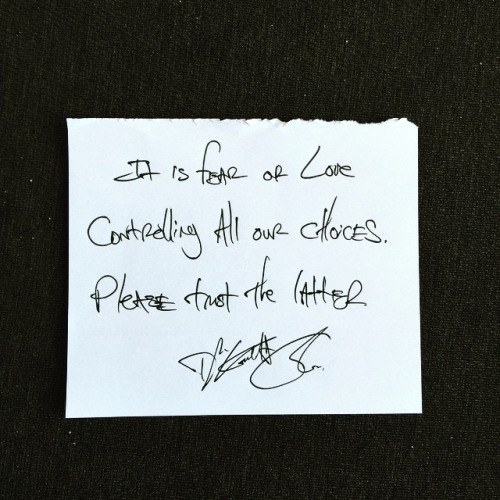 It is fear or Love
Controlling All our choices.
Please trust the latter